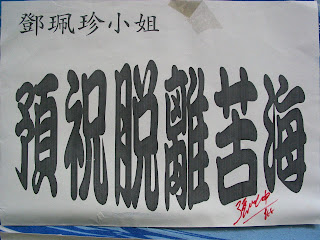 鄧珮珍小姐
預祝脫離苦海